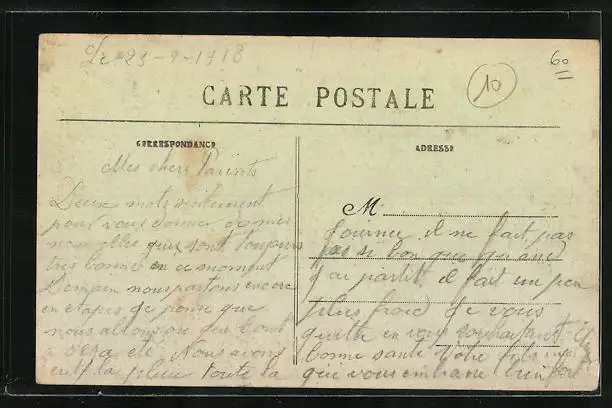 Le 23-9-1918
60
10
CARTE POSTALE
CORRESPONDANCE
ADRESSE
Mes chers Parents
Deux mots seulement
pour vous donner de mes
nouvelles qui sont toujours
tres bonne en ce moment
Demain nous partons encore
en etapes je pense que
nous allons ou
a été Nous avons
eut la pluie toute la
M
journee il ne fait pas
pas si bon que quand
j'ai partit il fait un peu
plus froid Je vous
quitte en vous souhaitant
bonne santé Votre fils
qui vous embrasse bien fort